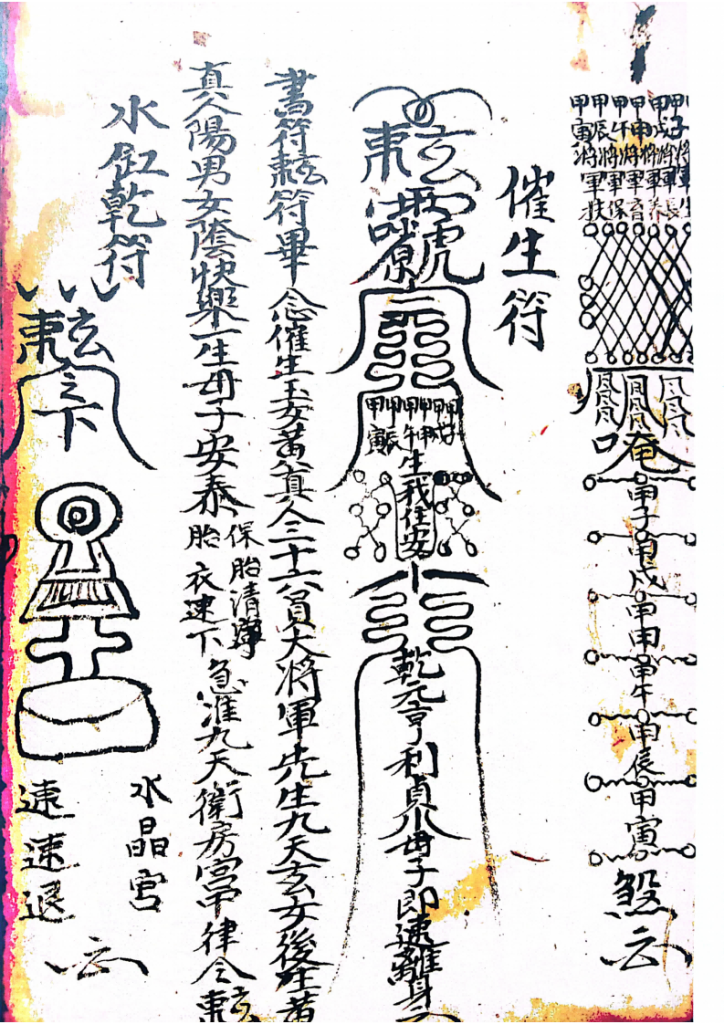 甲子將軍生
甲戌將軍長
甲申將軍養
甲午將軍育
甲辰將軍保
甲寅將軍扶
唵
甲子
甲戌
甲申
甲午
甲辰
甲寅
煞云
催生符
甲子
甲戌
甲申
甲午
甲辰
甲寅
生我住安
乾元亨利貞
母子即速離身
書符敕符畢
念催生玉女黃真人三十六員大將軍先生九天玄女後生黃
真人陽男女陰快樂一生母子安泰
保胎清寧
胎衣速下
急准九天衛房宮中律令敕
水缸乾符
之下
水晶宮
速速退
云